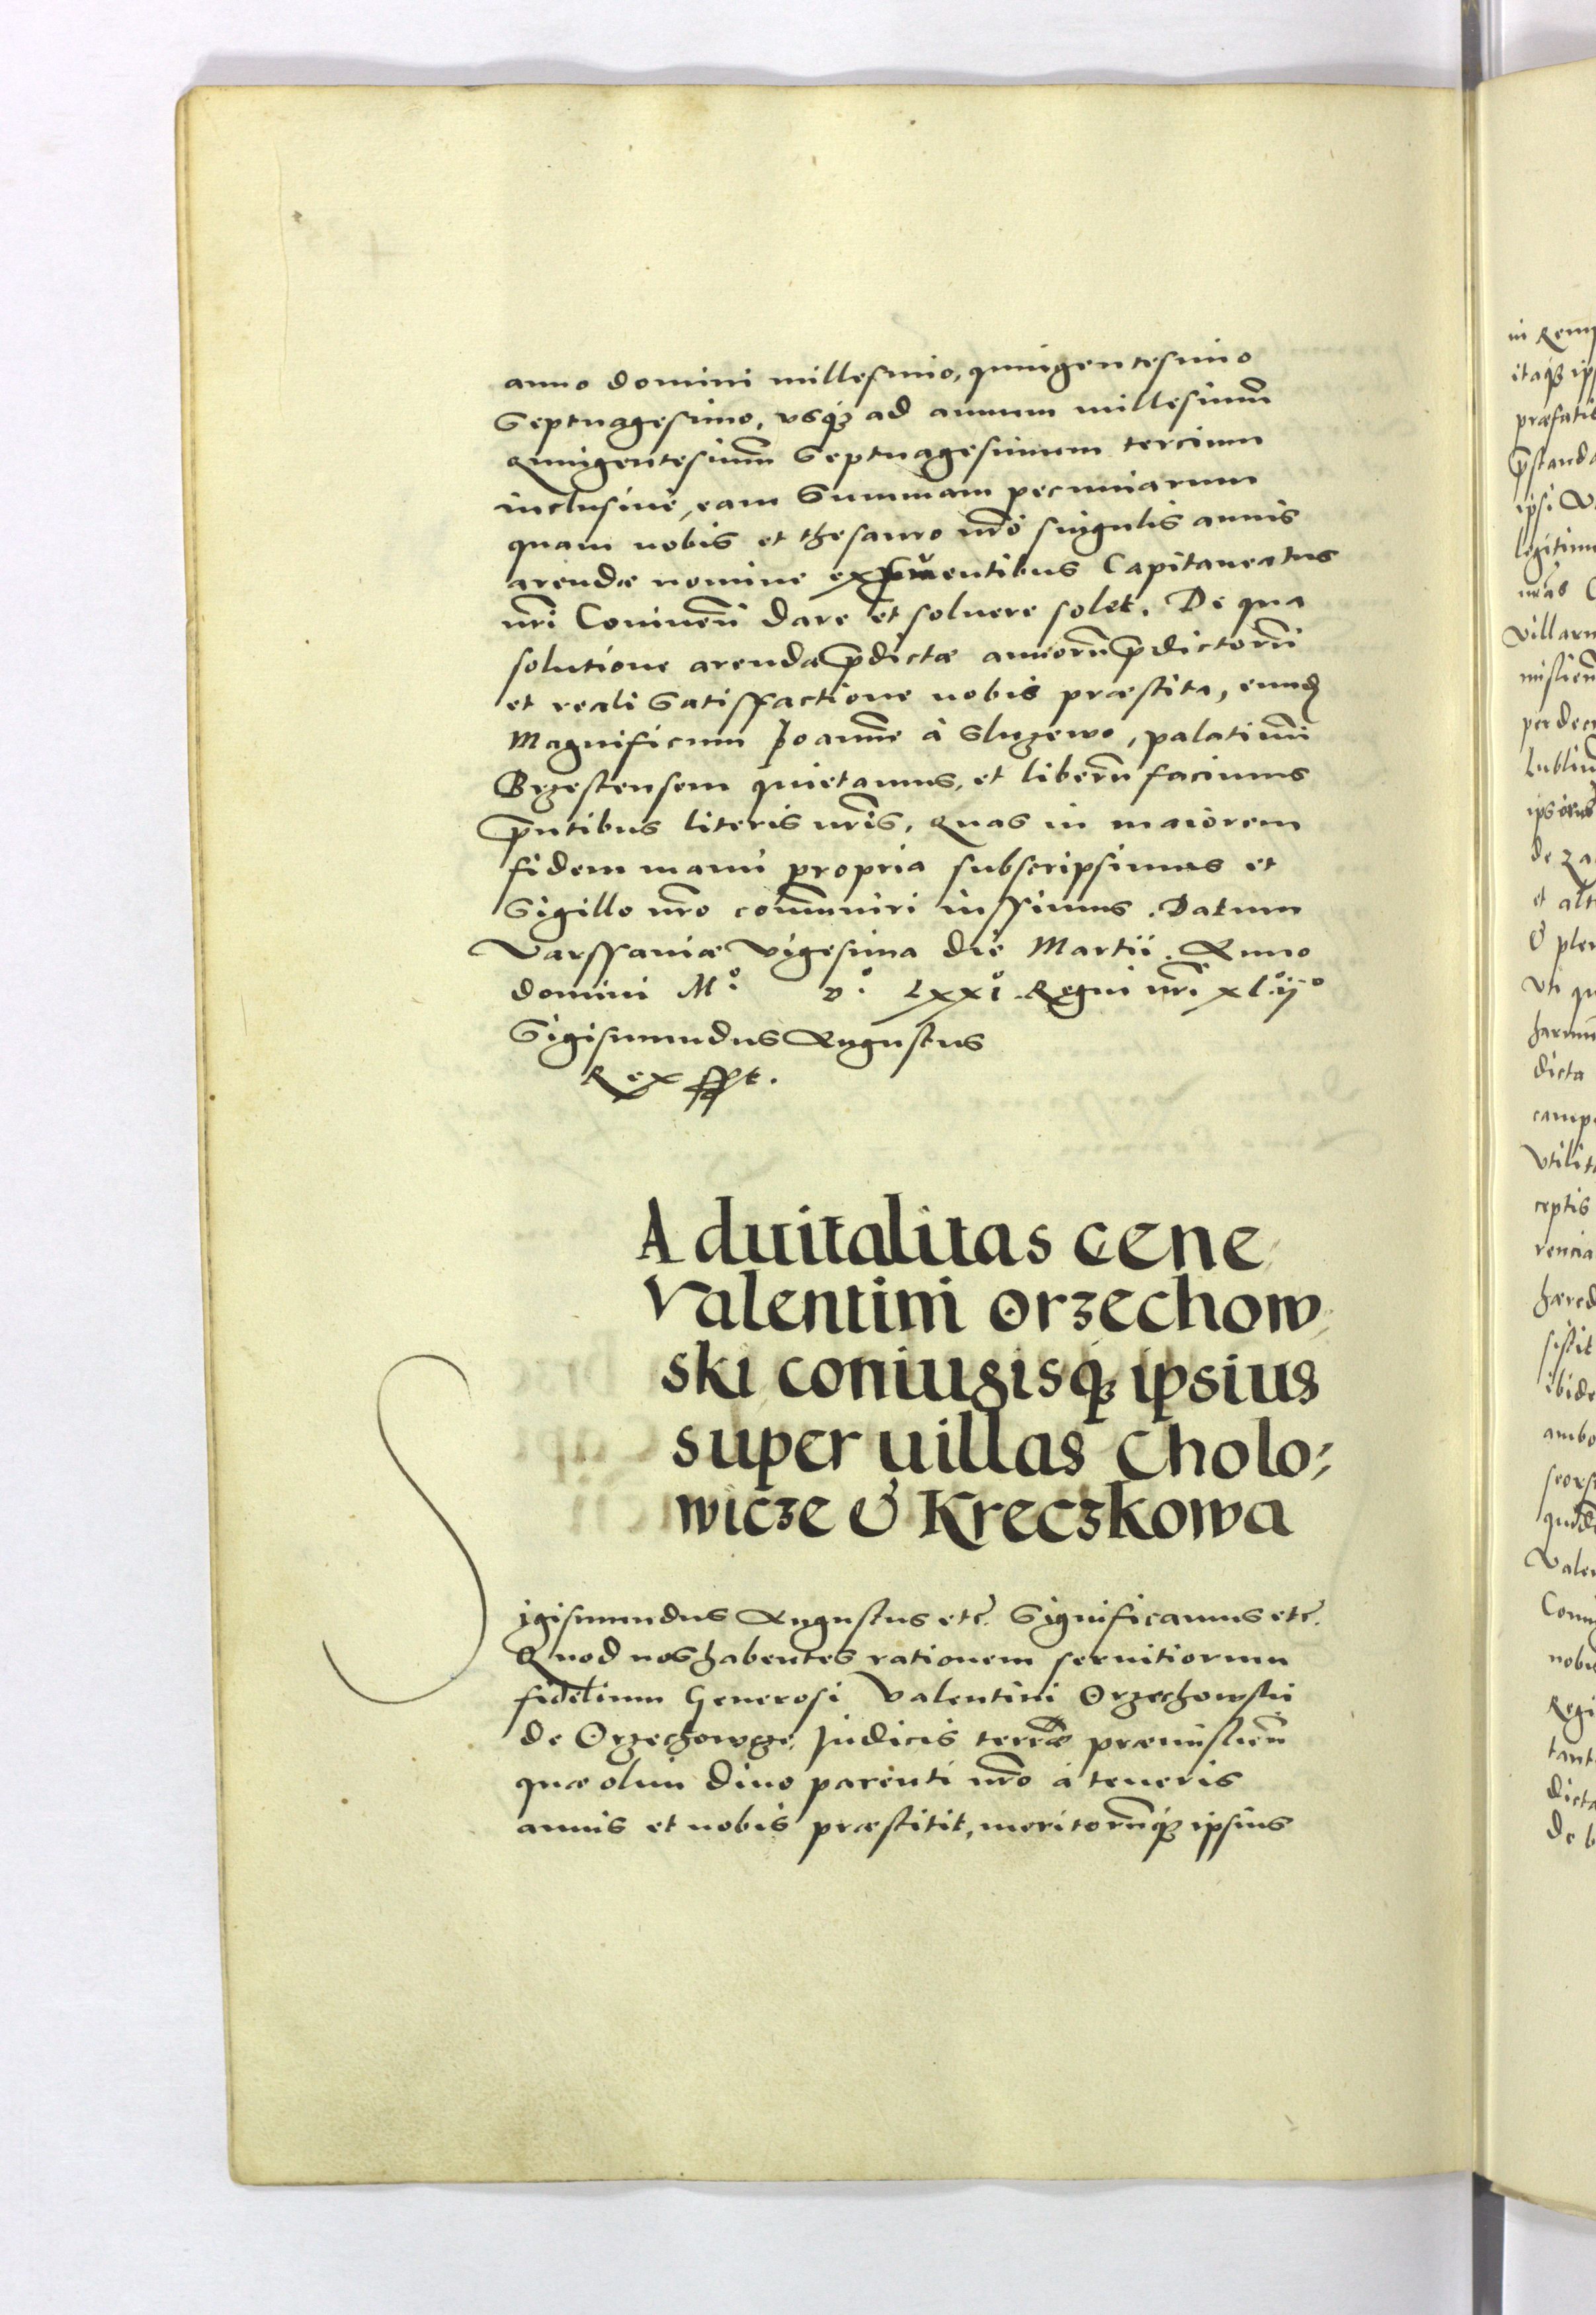 anno domini millesimo, quingentesimo
Septuagesimo, vsq3 ad annum millesimū
Quingentesimū Septuagesimum tercium
inclusiue, eam Summam pecuniarum
quam nobis et thesauro nrō singulis annis
arendæ nomine ex prouentibus Capitaneatus
nrī Coninēn dare et soluere solet. De qua
solutione arendæ p̄dictæ annorū p̄dictorū
et reali Satisfactione nobis præstita, eund
Magnificum Joannē à Sluzewo, palatinū
Brzestensem quietamus, et liberū facimus
p̄ntibus literis nrīs, Quas in maiorem
fidem manu propria subscripsimus et
Sigillo nrō com̄uniri iussimus. Datum
Varssauiæ Vigesima die Martii. Anno
domini Mº. Dº. LXXIº. Regni nrī xl.ijº
Sigismundus Augustus
Rex sspt.
Aduitalitas Gene
Valentini Orzechow
ski coniugisq3 ipsius
super uillas Cholo
wicze & Kreczkowa
Sigismundus Augustus etc̄. Significamus etc̄.
Quod nos habentes rationem seruitiorum
fidelium Generosi Valentini Orzechowski
de Orzechowcze, Judicis terræ præmisliēn
quæ olim diuo parenti nrō à teneris
annis et nobis præstitit, meritorūq3 ipsius